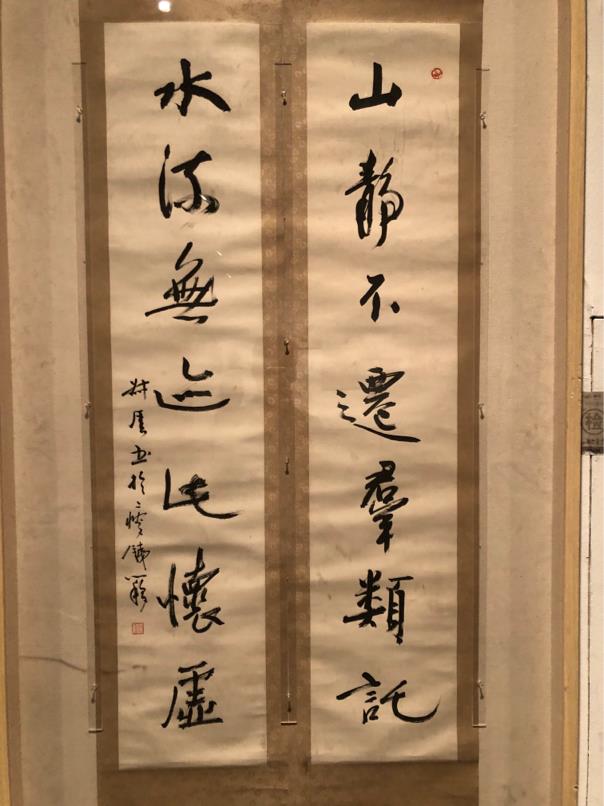 山靜不遷羣類託
水流無迹此懷虛
書於